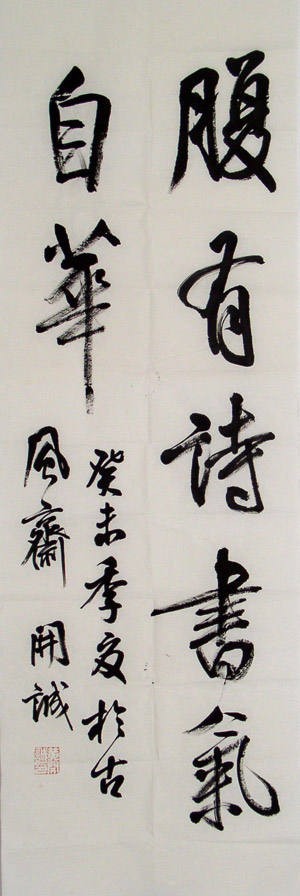 腹有诗書氣
自華
癸未季夏於古
風齋 開誠